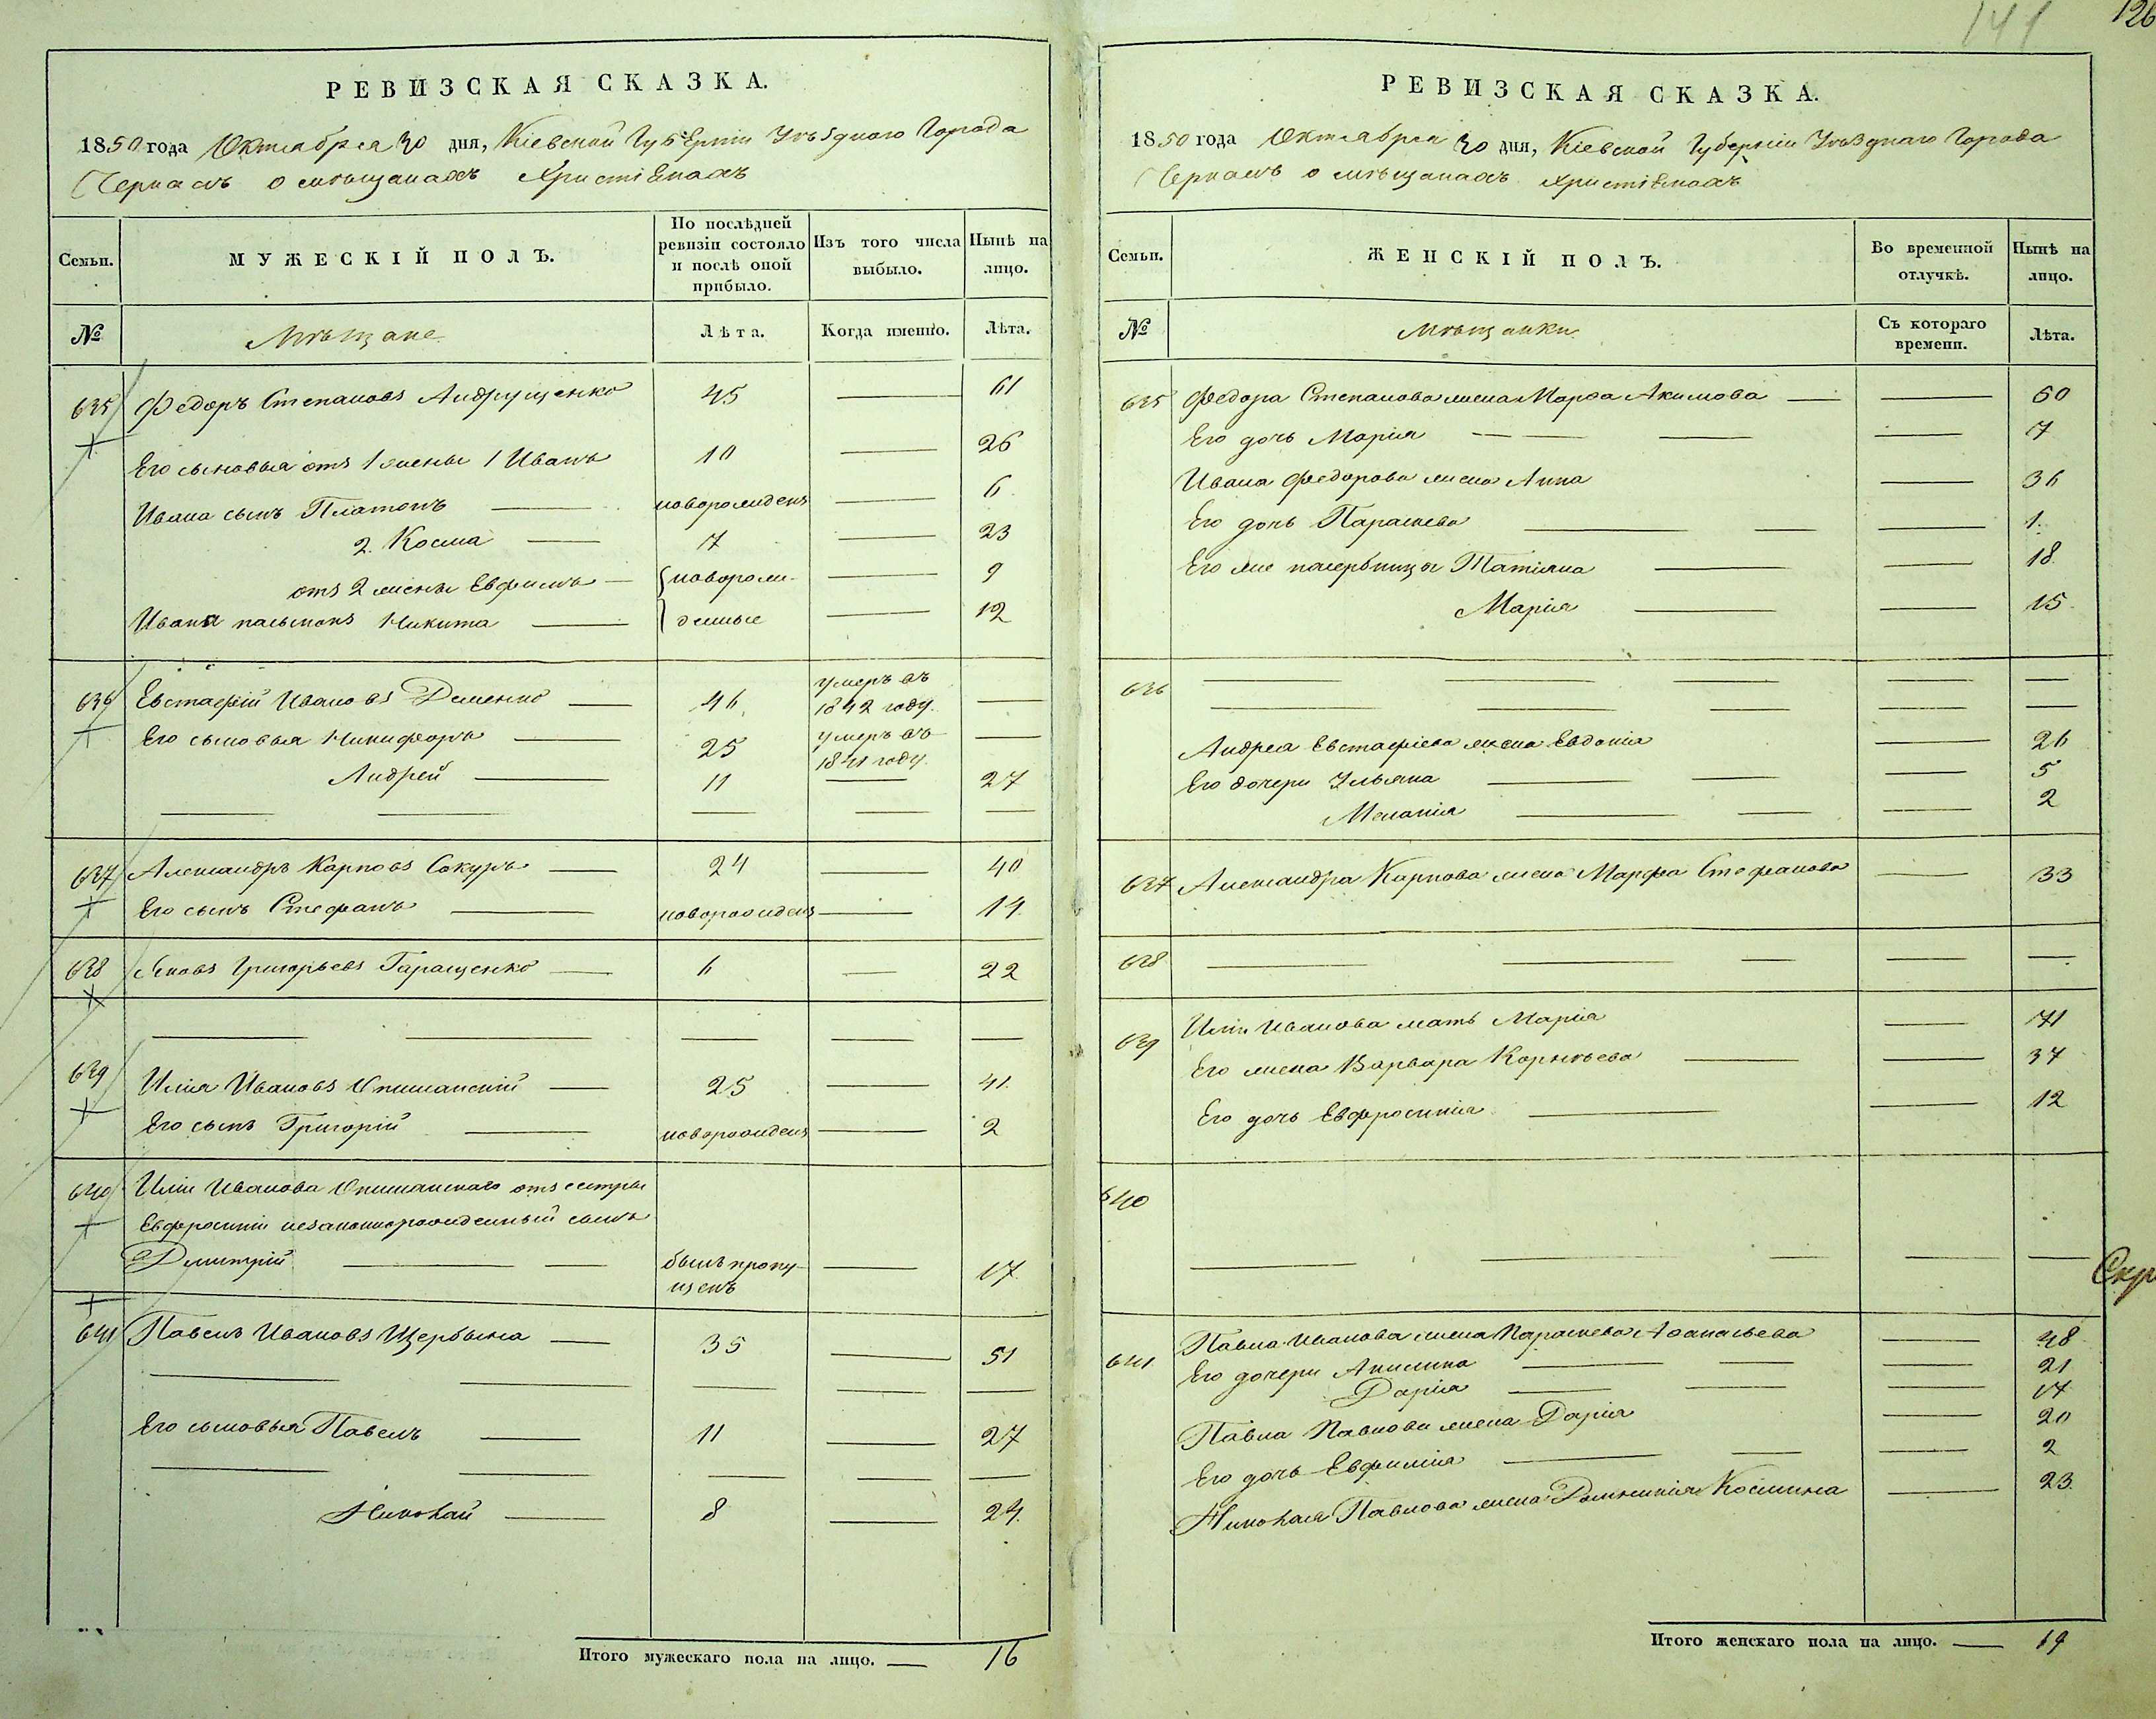 141 126
РЕВИЗСКАЯ СКАЗКА.
1850 года Октября 30 дня, Кіевской Губерніи Уѣзднаго Города
Черкасъ о мѣщанахъ Христіянахъ
Семьи.
МУЖЕСКІЙ ПОЛЪ.
По послѣдней ревизіи состояло и послѣ оной прибыло.
Изъ того числа выбыло.
Нынѣ на лицо.
№
Мѣщане
Лѣта.
Когда именно.
Лѣта.
635 Федоръ Степановъ Андрущенко 45 — 61
Его сыновья отъ 1 жены 1 Иванъ 10 — 26
Ивана сынъ Платонъ — новорожденъ — 6
2. Косма — 7 — 23
отъ 2 жены Евфимъ — новорож- — 9
Ивана пасынокъ Никита — денные — 12
636 Евстафій Ивановъ Деменко — 46 умеръ въ 1842 году —
Его сыновья Никифоръ — 25 умеръ въ 1841 году —
Андрей — 11 — 27
637 Александръ Карповъ Сокуръ — 24 — 40
Его сынъ Стефанъ — новорожденъ — 14
638 Яковъ Григорьевъ Гаращенко — 6 — 22
639 Илія Ивановъ Опишанскій — 25 — 41
Его сынъ Григорій — новорожденъ — 2
640 Иліи Иванова Опишанскаго отъ сестры
Евфросиніи незаконнорожденный сынъ
Дмитрій — былъ пропу- — 17
щенъ
641 Павелъ Ивановъ Щербина — 35 — 51
Его сыновья Павелъ — 11 — 27
Николай — 8 — 24
Итого мужескаго пола на лицо. — 16
РЕВИЗСКАЯ СКАЗКА.
1850 года Октября 30 дня, Кіевской Губерніи Уѣзднаго Города
Черкасъ о мѣщанахъ Христіянахъ
Семьи.
ЖЕНСКІЙ ПОЛЪ.
Во временной отлучкѣ.
Нынѣ на лицо.
№
Мѣщанки
Съ котораго времени.
Лѣта.
635 Федора Степанова жена Марѳа Акимова — — 50
Его дочь Марія — — 7
Ивана Федорова жена Анна — 36
Его дочь Параскева — — 1
Его же пасербицы Татіяна — — 18
Марія — — 15
636 — — —
Андрея Евстафіева жена Евдокія — 26
Его дочери Ульяна — — 5
Меланія — — 2
637 Александра Карпова жена Марфа Стефанова — 33
638 — — —
639 Иліи Иванова мать Марія — 71
Его жена Варвара Корнѣева — — 37
Его дочь Евфросинія — — 12
640
— — —
Скр
641 Павла Иванова жена Параскева Аѳанасьева — 48
Его дочери Акилина — — 21
Дарія — — 17
Павла Павлова жена Дарія — 20
Его дочь Евфимія — — 2
Николая Павлова жена Домникія Космина — 23
Итого женскаго пола на лицо. — 19